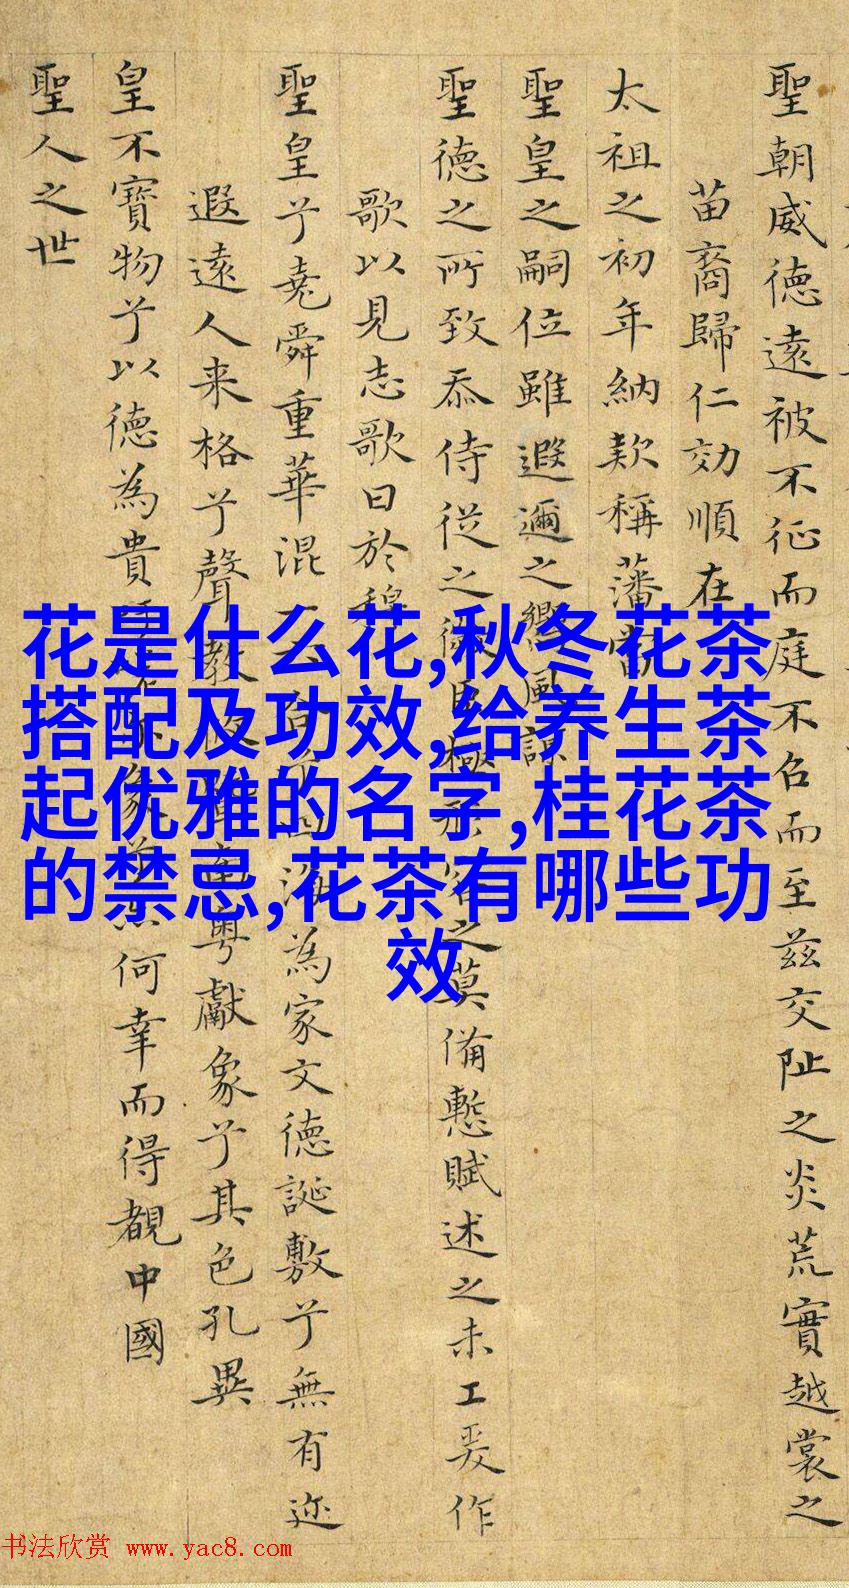 聖朝威德遠被不征而庭不召而至茲交阯之炎荒實越裳之
苗裔歸仁効順在
太祖之初年納款稱藩當
聖皇之嗣位雖遐邇之
聖德之所致忝侍從之
之莫備慙賦述之未工爰作
歌以見志歌曰於穆
聖皇兮堯舜重華混一
海為家文德誕敷兮無有迩
遐遠人来格兮聲教
粵獻象兮其色孔異
皇不寶物兮以德為貴
何幸而得覩中國
聖人之世
花是什么花,秋冬花茶
搭配及功效,给养生茶
起优雅的名字,桂花茶
的禁忌,花茶有哪些功
效
书法欣赏 www.yac8.com